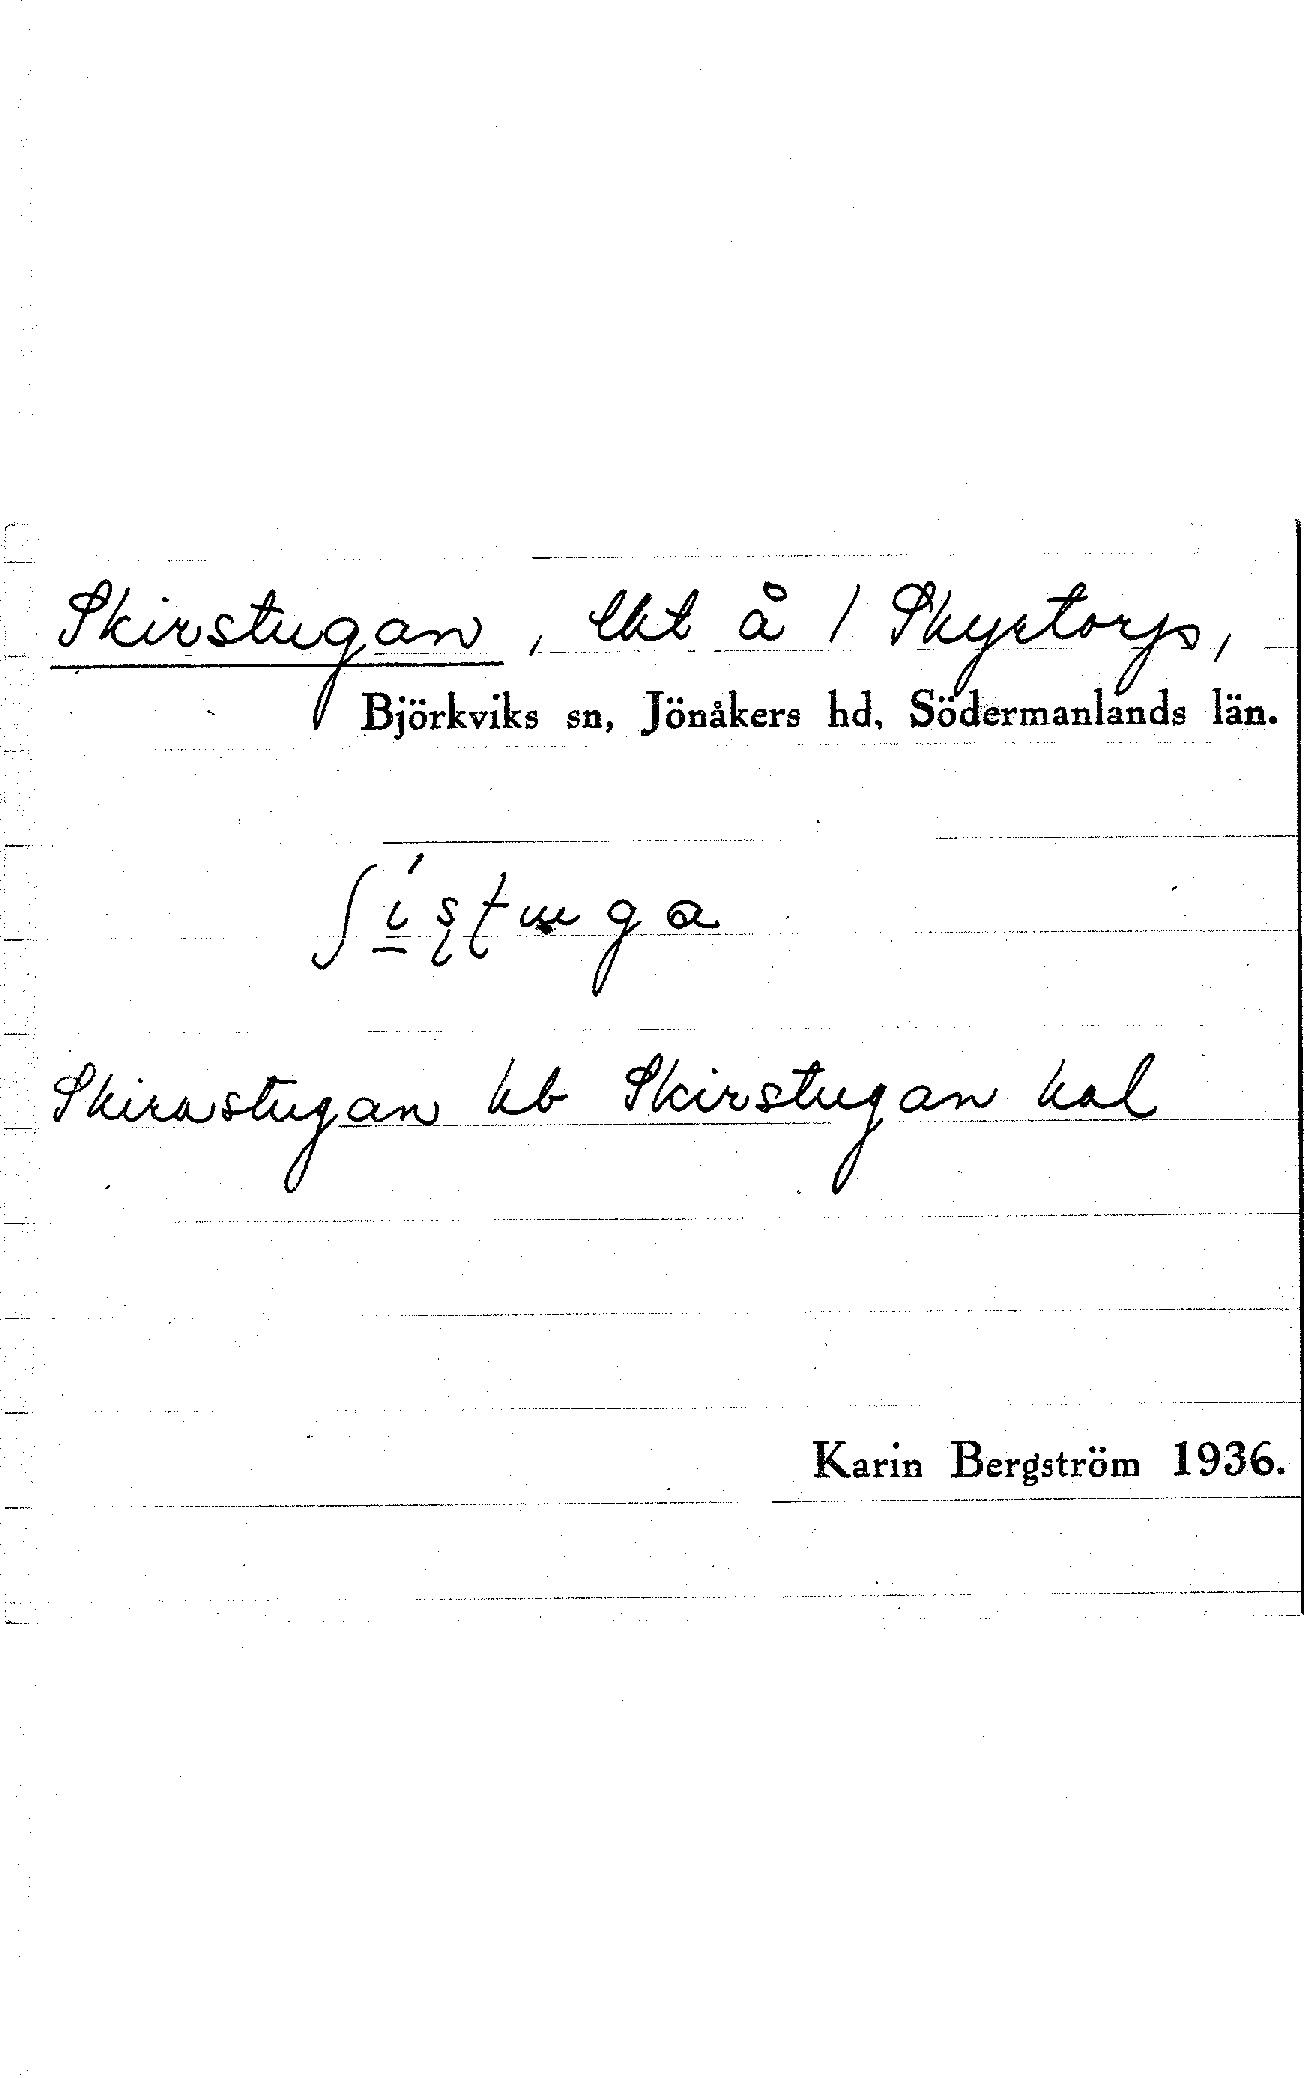 Skirstugan, lht å / Skyrtorp,
Björkviks sn, Jönåkers hd, Södermanlands län.
Skirastugan kb Skirstugan hal
Karin Bergström 1936.